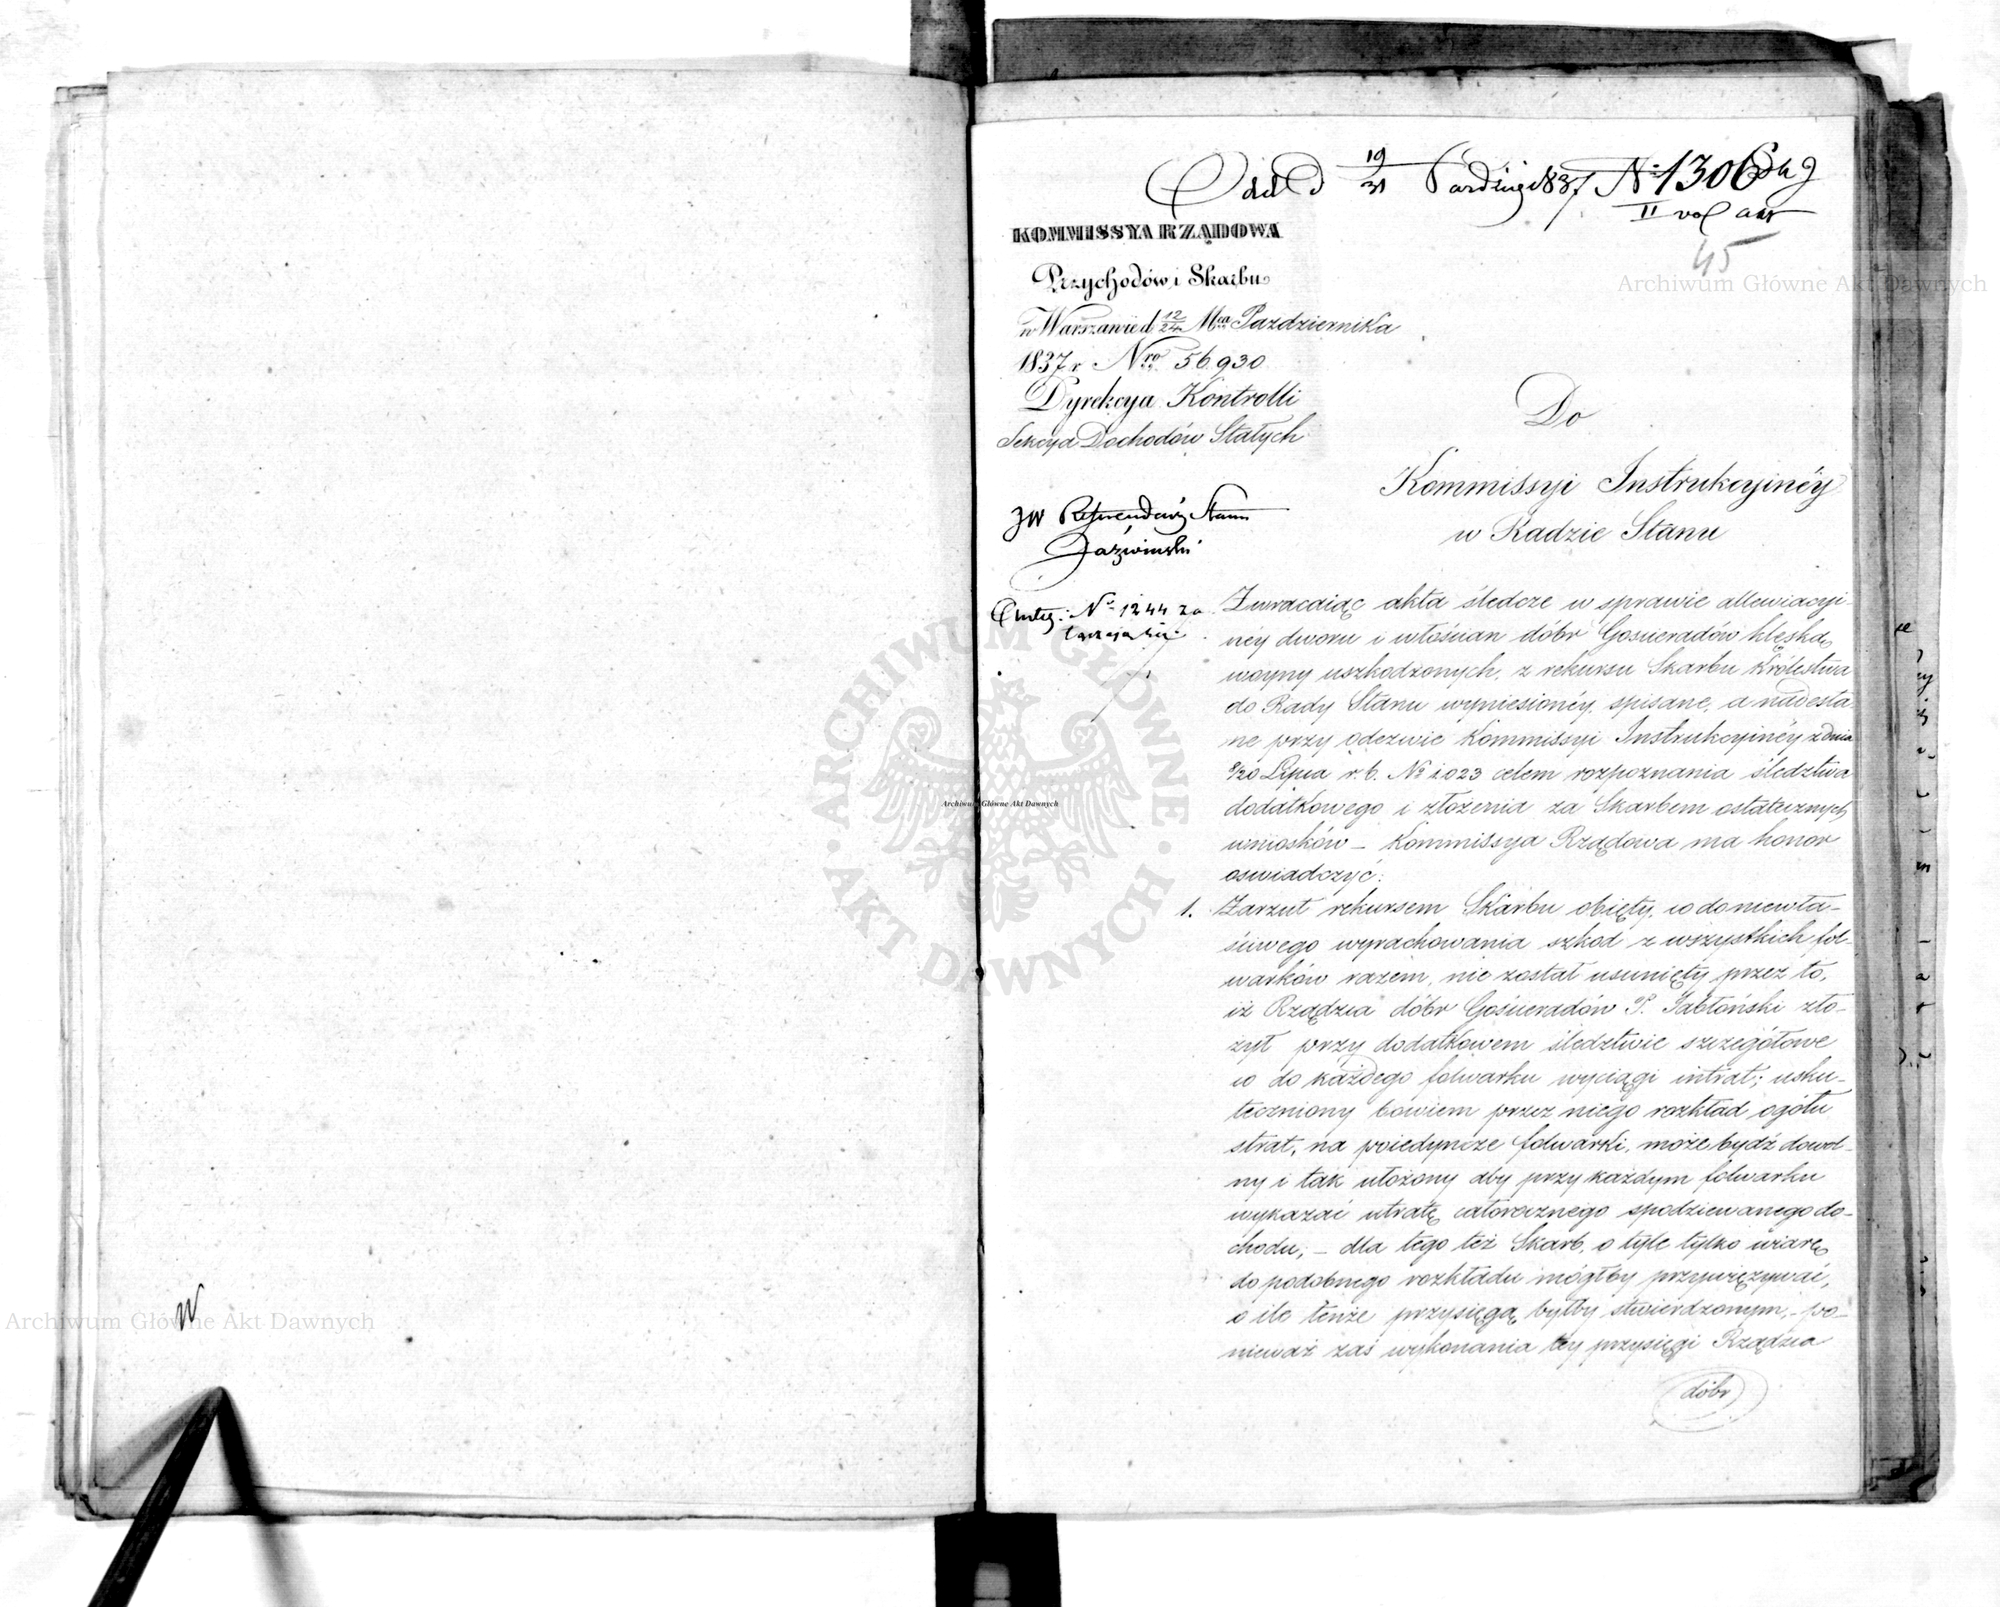 Odd d 19/31 Paździer 1837 N° 1306
II vol akt
45
KOMMISSYA RZĄDOWA
Przychodów i Skarbu
w Warszawie d 12/24 Mca Pazdziernika
1837 r Nro 56930
Dyrekcya Kontrolli
Sekcya Dochodów Stałych
Do
Kommissyi Instrukcyinéy
w Radzie Stanu
JW Referendarz Stanu
Jaźwiński
N° 1244
Zwracaiąc akta śledcze w sprawie allewiacyi-
néy dworu i włościan dóbr Gościeradów klęską
woyny uszkodzonych, z rekursu Skarbu Królestwa
do Rady Stanu wyniesionéy, spisane, a nadesła-
ne przy odezwie Kommissyi Instrukcyinéy z dnia
8/20 Lipca r. b. No 1023 celem rozpoznania śledztwa
dodatkowego i złożenia za Skarbem ostatecznych
wniosków – Kommissya Rządowa ma honor
oświadczyć:
1. Zarzut rekursem Skarbu obięty, co do niewła-
ściwego wyrachowania szkod z wszystkich fol-
warków razem, nie został usunięty przez to,
iż Rządzca dóbr Gościeradów P. Jabłoński zło-
żył przy dodatkowem śledztwie szczegółowe
co do każdego folwarku wyciągi intrat; usku-
teczniony bowiem przez niego rozkład ogółu
strat, na poiedyncze folwarki, może bydź dowol-
ny i tak ułożony aby przy każdym folwarku
wykazać utratę całorocznego spodziewanego do-
chodu; – dla tego też Skarb, o tyle tylko wiarę
do podobnego rozkładu mógłby przywięzywać,
o ile tenże przysięgą byłby stwierdzonym, – po-
nieważ zaś wykonania tey przysięgi Rządzca
dóbr
Archiwum Główne Akt Dawnych
Archiwum Główne Akt Dawnych
Archiwum Główne Akt Dawnych
ARCHIWUM GŁÓWNE
AKT DAWNYCH